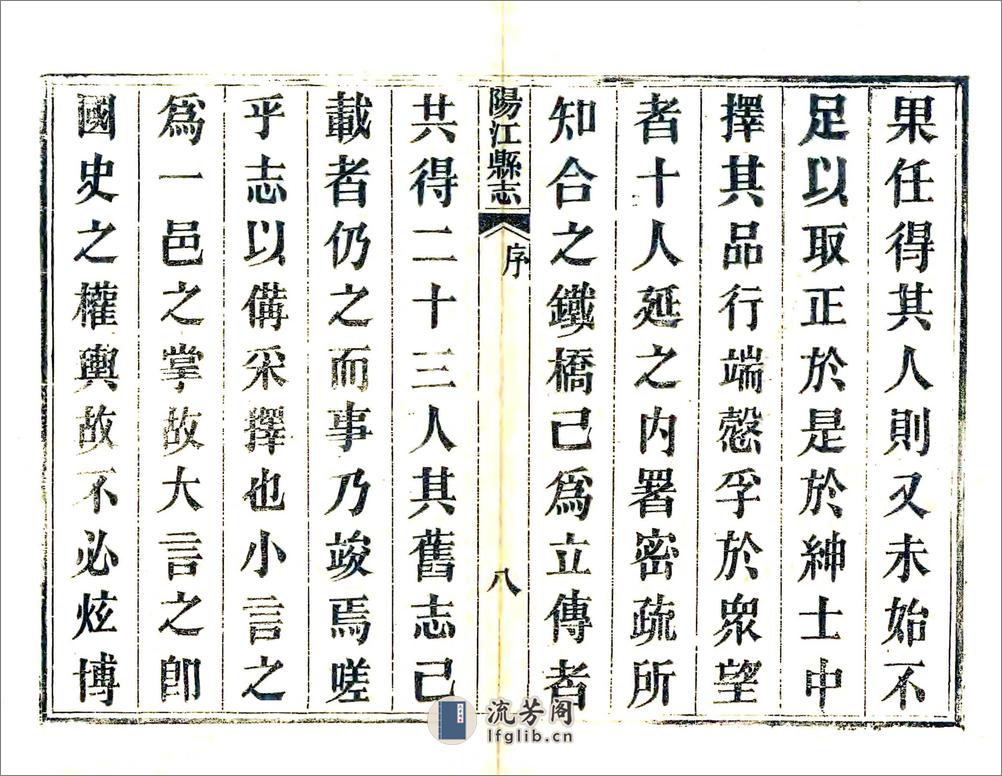 果任得其人則又未始不
足以取正於是於紳士中
擇其品行端慤孚於衆望
者十人延之内署密疏所
知合之鐵橋己爲立傳者
陽江縣志 序 八
共得二十三人其舊志己
載者仍之而事乃竣焉嗟
乎志以備采擇也小言之
爲一邑之掌故大言之卽
國史之權輿故不必炫博
流芳阁
lfglib.cn